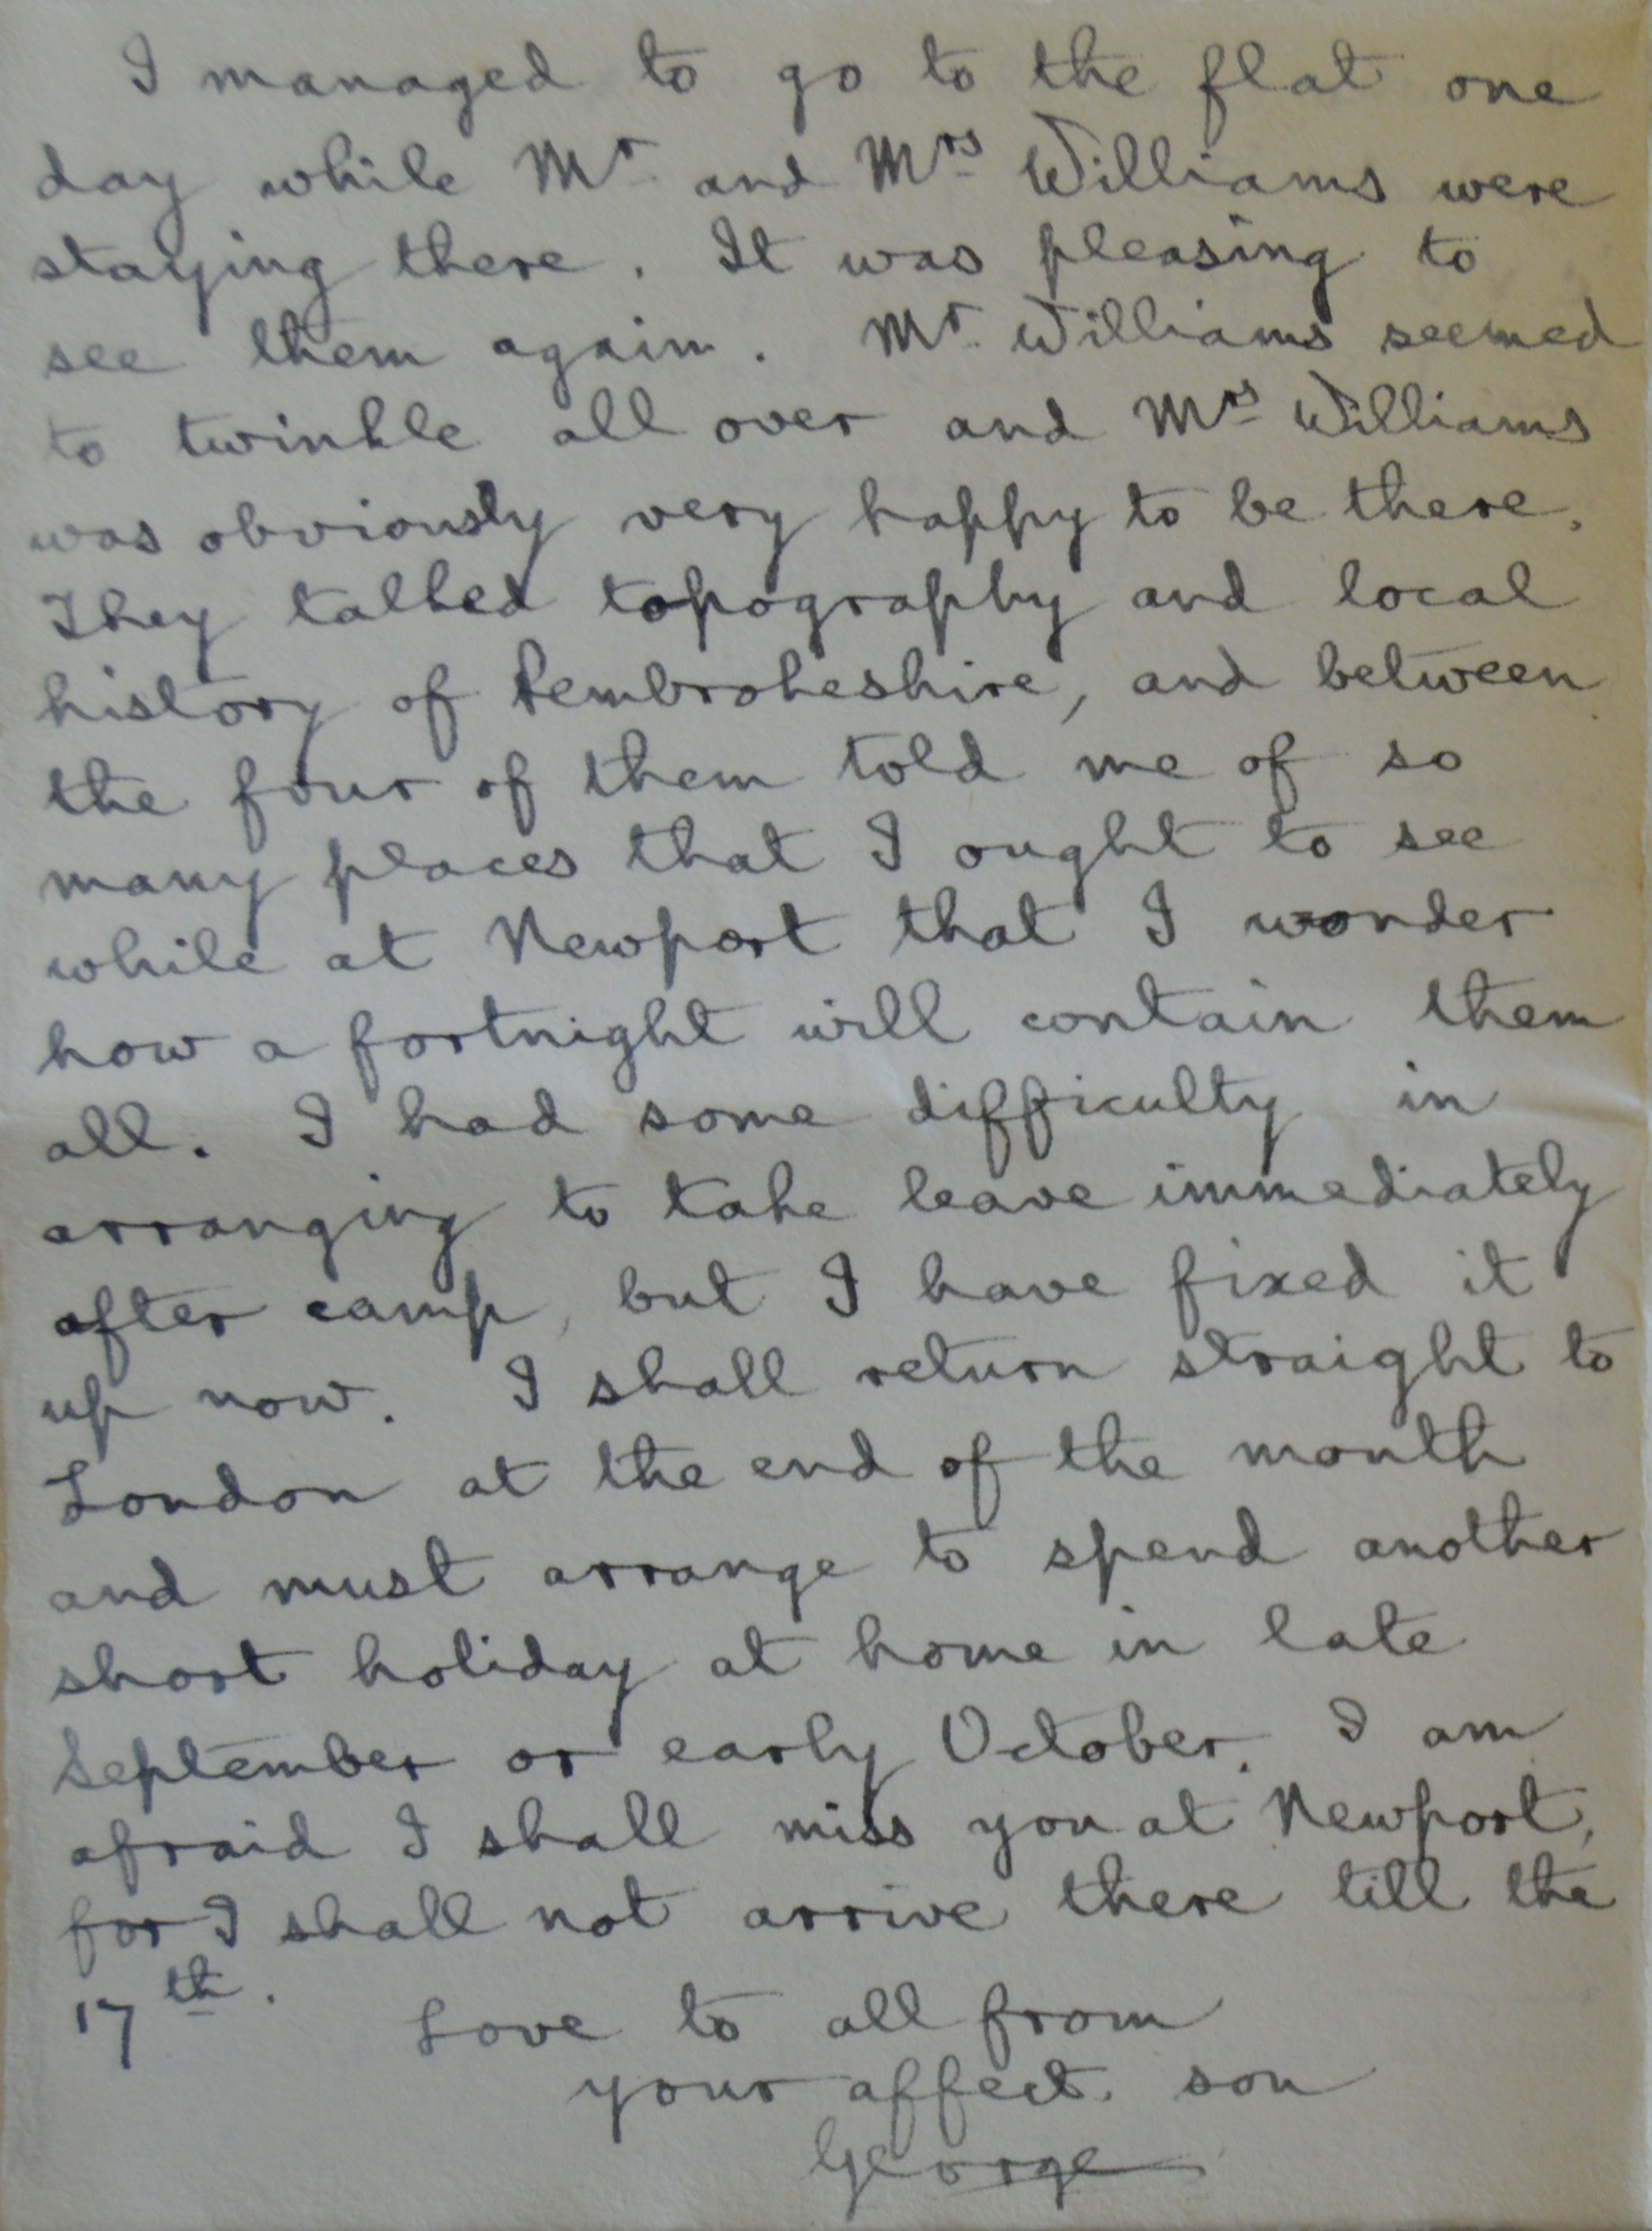 I managed to go to the flat one
day while Mr. and Mrs. Williams were
staying there. It was pleasing to
see them again. Mr. Williams seemed
to twinkle all over and Mrs. Williams
was obviously very happy to be there.
They talked topography and local
history of Pembrokeshire, and between
the four of them told me of so
many places that I ought to see
while at Newport that I wonder
how a fortnight will contain them
all. I had some difficulty in
arranging to take leave immediately
after camp, but I have fixed it
up now. I shall return straight to
London at the end of the month
and must arrange to spend another
short holiday at home in late
September or early October. I am
afraid I shall miss you at Newport,
for I shall not arrive there till the
17th.
Love to all from
your affect. son
George